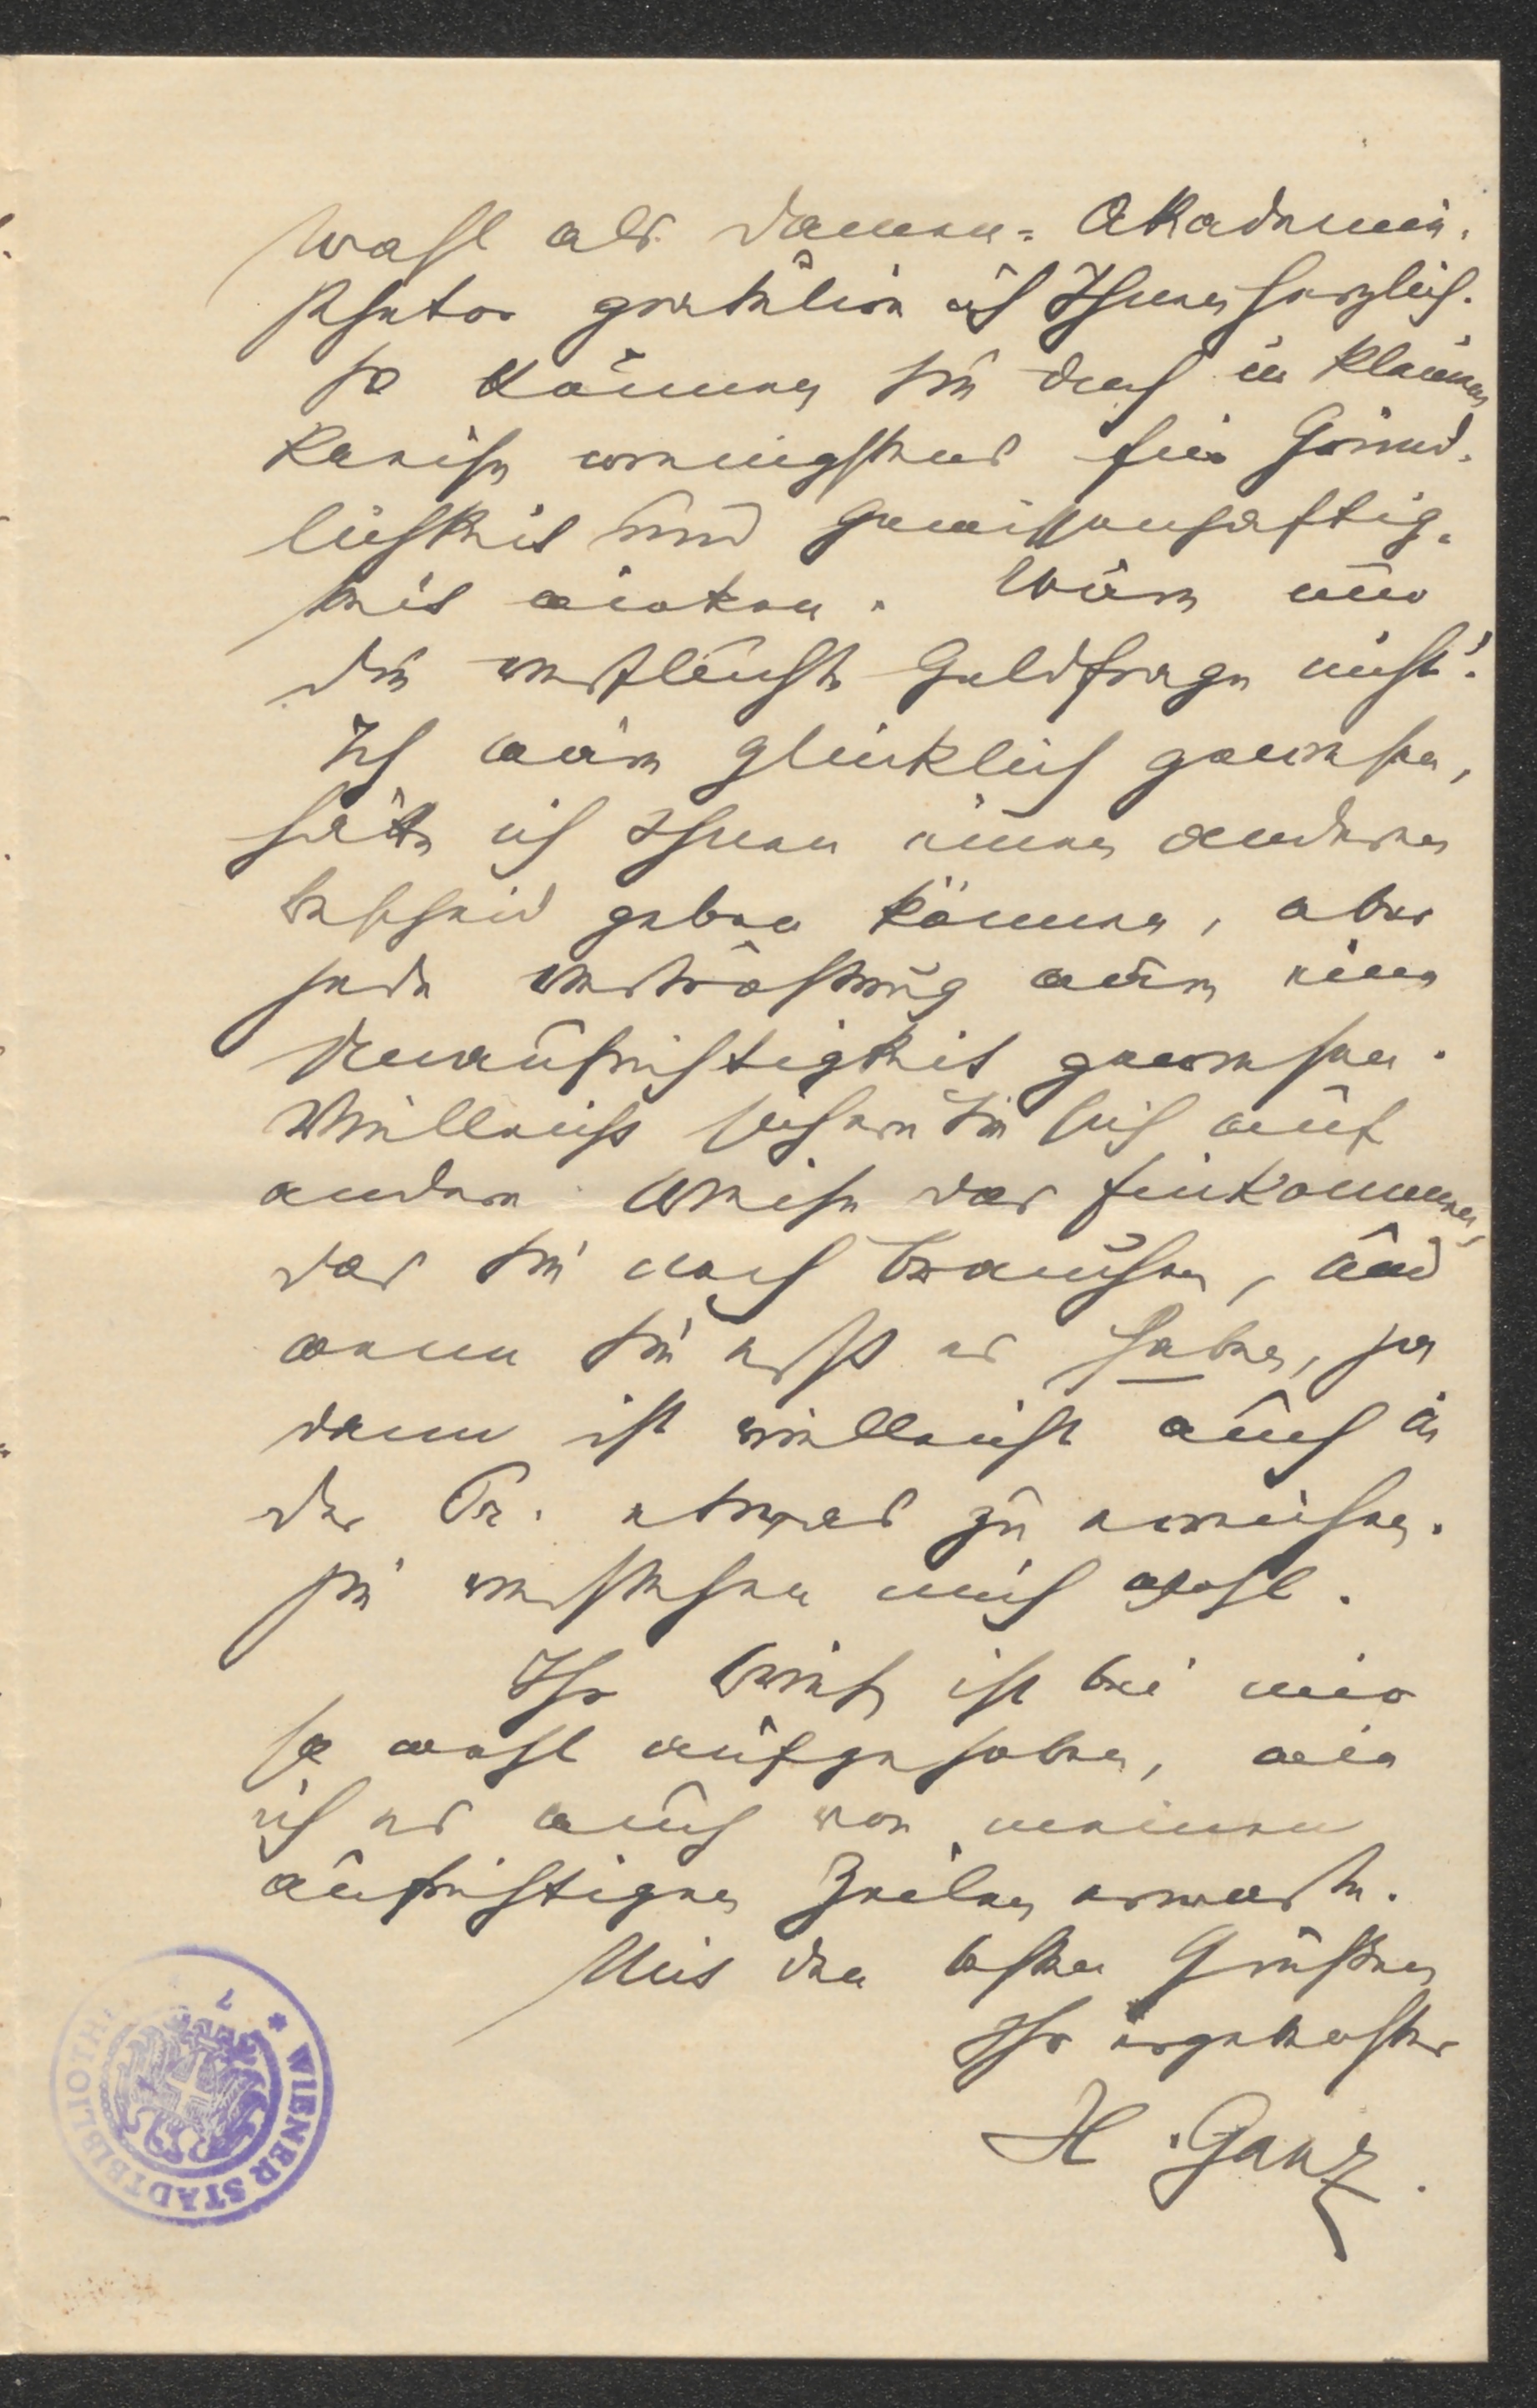 Wahl als Damen-Akademie-
 gratuliere ich Ihnen herzlich.
So können Sie doch in kleinem
Kreise wenigstens für Gründ-
lichkeit und Gewissenhaftig-
keit wirken. Wäre nur
die verfluchte Geldfrage nicht!
Ich wäre glücklich gewesen,
hätte ich Ihnen einen anderen
Bescheid geben können, aber
jede Vertröstung wäre eine
Unaufrichtigkeit gewesen.
Vielleicht sichern Sie sich auf
andere Weise das Einkommen,
das Sie noch brauchen, und
wenn Sie erst es haben, ja
dann ist vielleicht auch in
der Pr. etwas zu erreichen.
Sie verstehen mich wohl.
Ihr Brief ist bei mir
so wohl aufgehoben, wie
ich es auch von meinen
aufrichtigen Zeilen erwarte.
Mit den besten Grüßen
Ihr ergebenster
H. Ganz.
WIENER STADTBIBLIOTHEK